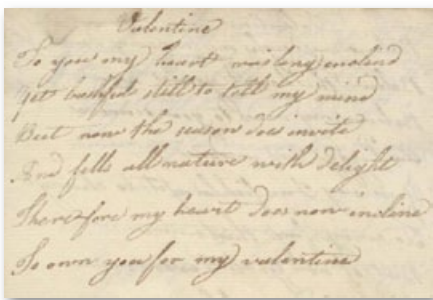 Valentine
To you my heart was long inclind
Yet bashful still to tell my mind
But now the season does invite
And fills all nature with delight
Therefore my heart does now incline
To own you for my valentine